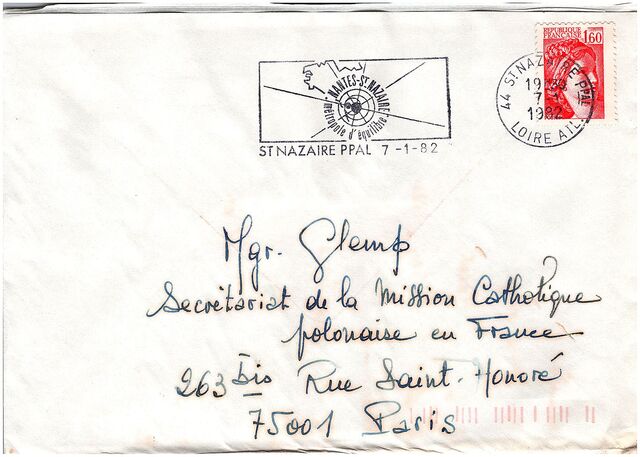 REPUBLIQUE
FRANCAISE
1,60
NANTES-ST NAZAIRE
métropole d'équilibre
ST NAZAIRE PPAL 7-1-82
44 ST NAZAIRE PPAL
7-1
1982
LOIRE ATL.
Mgr. Glemp
Secrétariat de la Mission Catholique
polonaise en France
263 bis Rue Saint-Honoré
75001 Paris